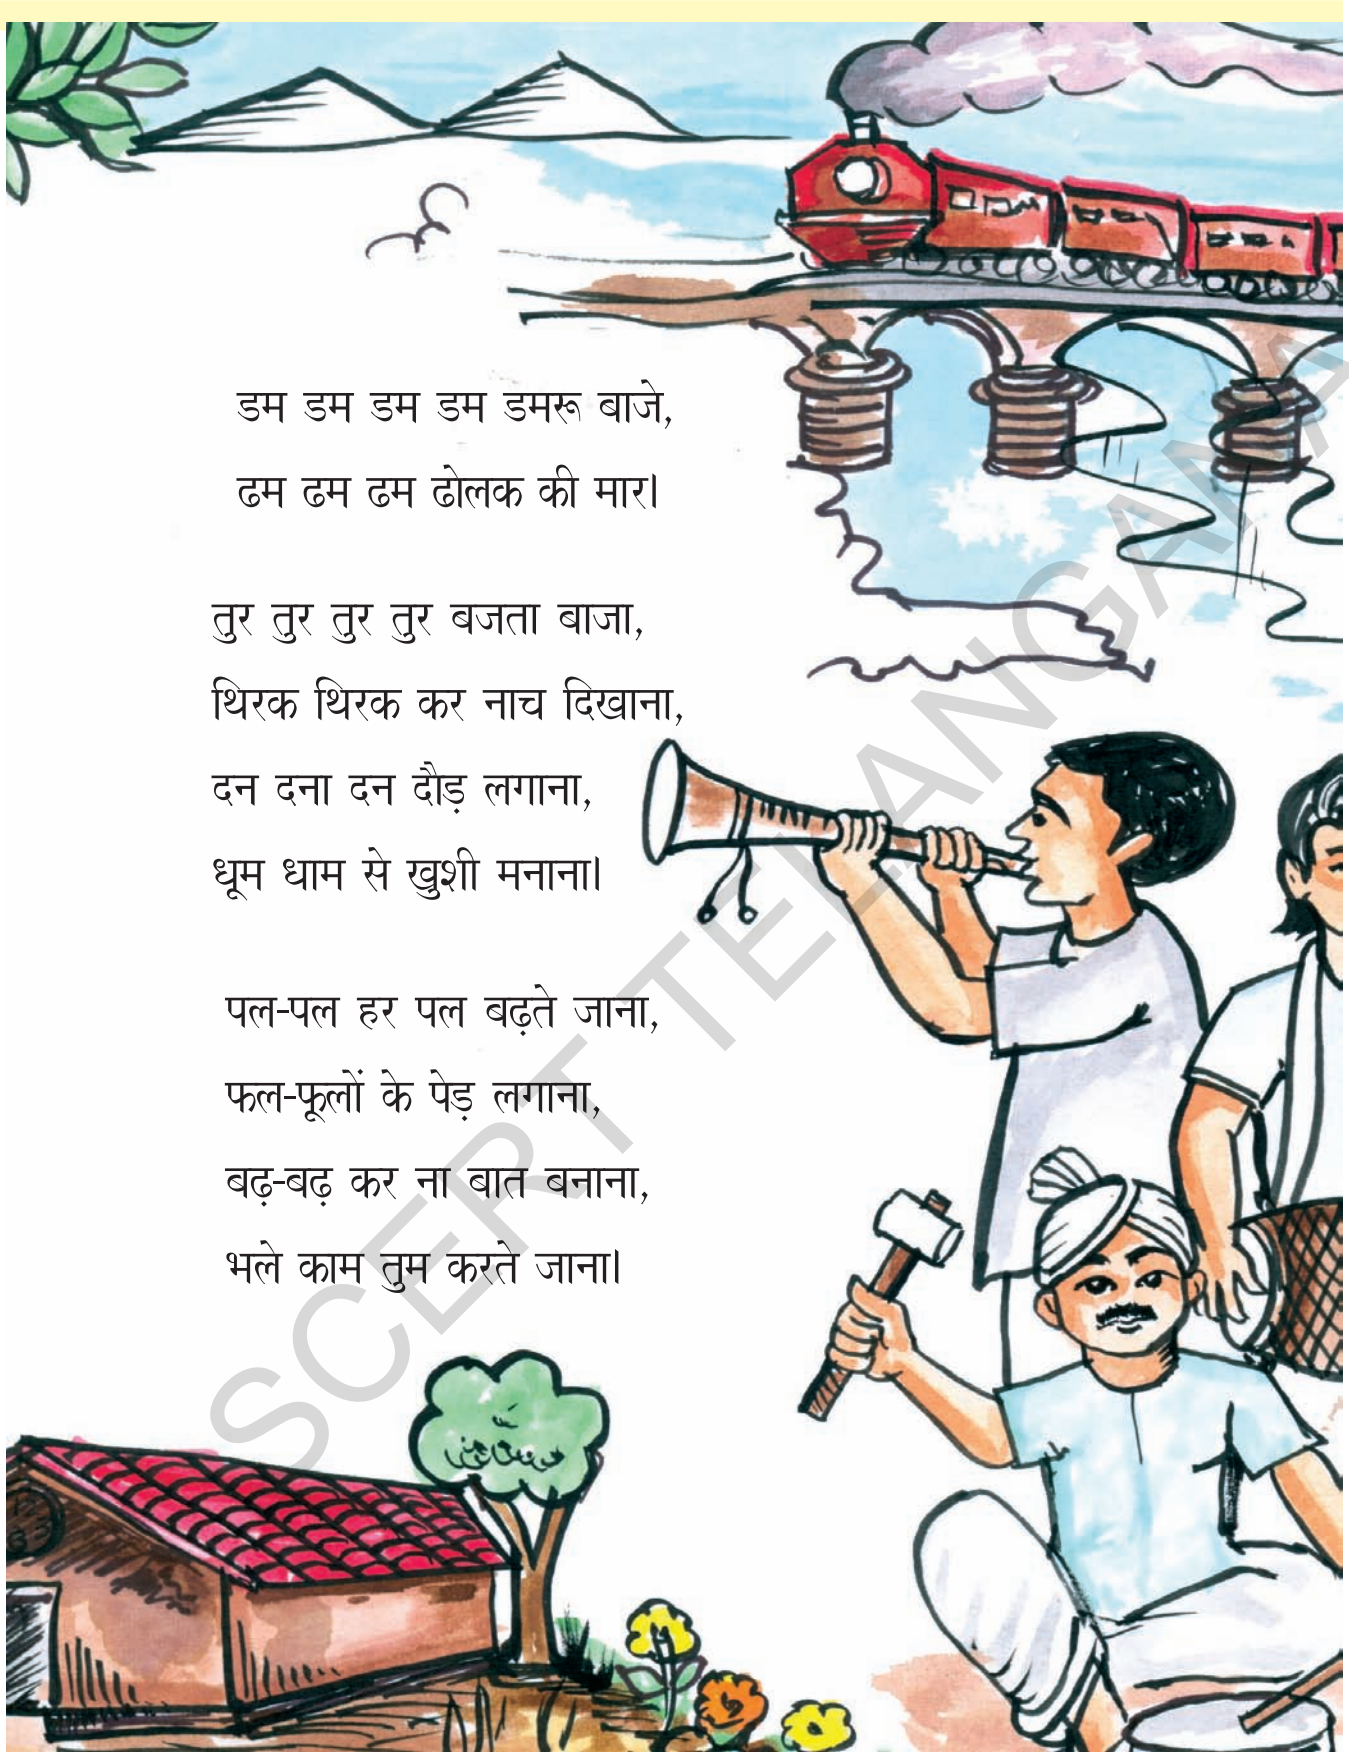 डम डम डम डम डमरू बाजे,
ढम ढम ढम ढोलक की मार।
तुर तुर तुर तुर बजता बाजा,
थिरक थिरक कर नाच दिखाना,
दन दना दन दौड़ लगाना,
धूम धाम से खुशी मनाना।
पल-पल हर पल बढ़ते जाना,
फल-फूलों के पेड़ लगाना,
बढ़-बढ़ कर ना बात बनाना,
भले काम तुम करते जाना।
SCERT TELANGANA